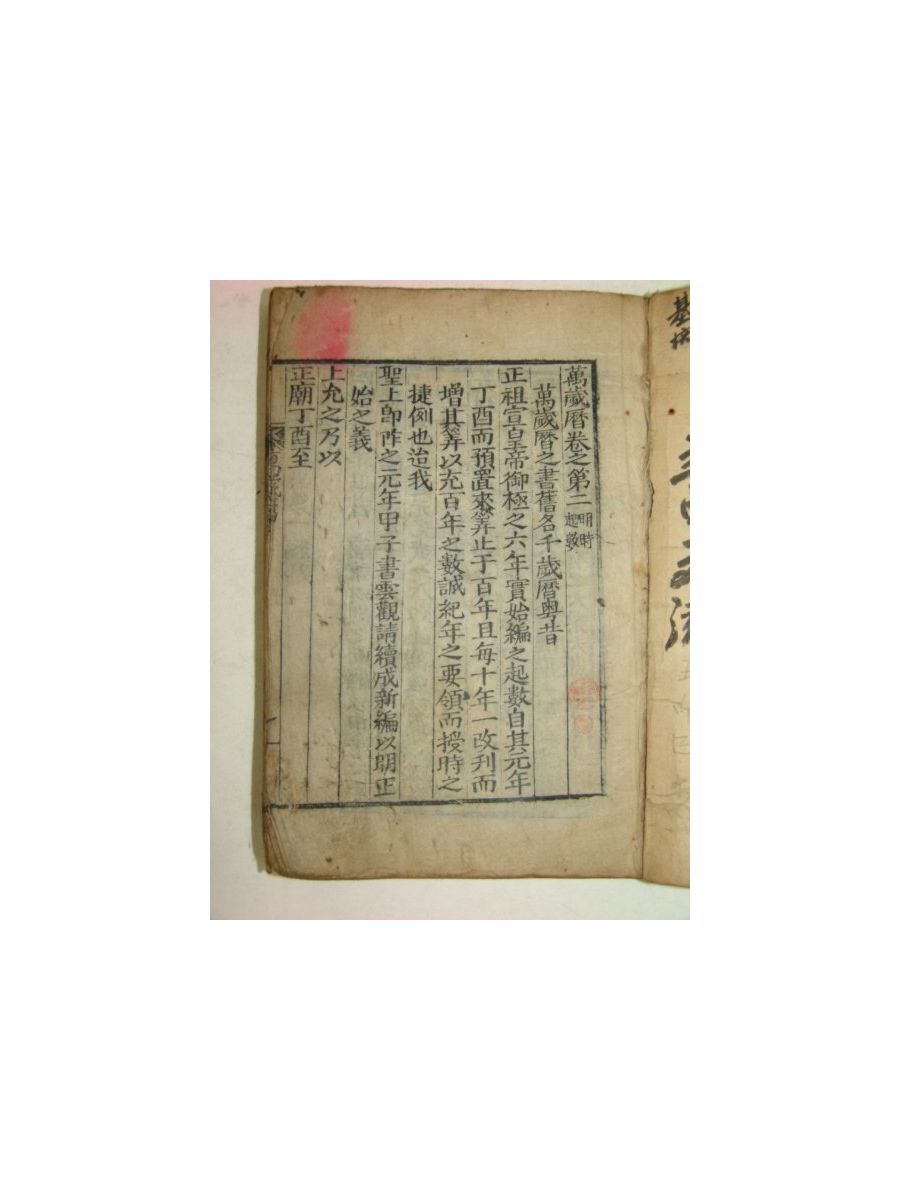 萬歲曆卷之第二 明時起數
萬歲曆之書舊名千歲曆粵昔
正祖宣皇帝御極之六年實始編之起數自其元年
丁酉而預置來筭止于百年且每十年一改刋而
增其筭以充百年之數誠紀年之要領而授時之
捷例也迨我
聖上卽阼之元年甲子書雲觀請續成新編以明正
始之義
上允之乃以
正廟丁酉至